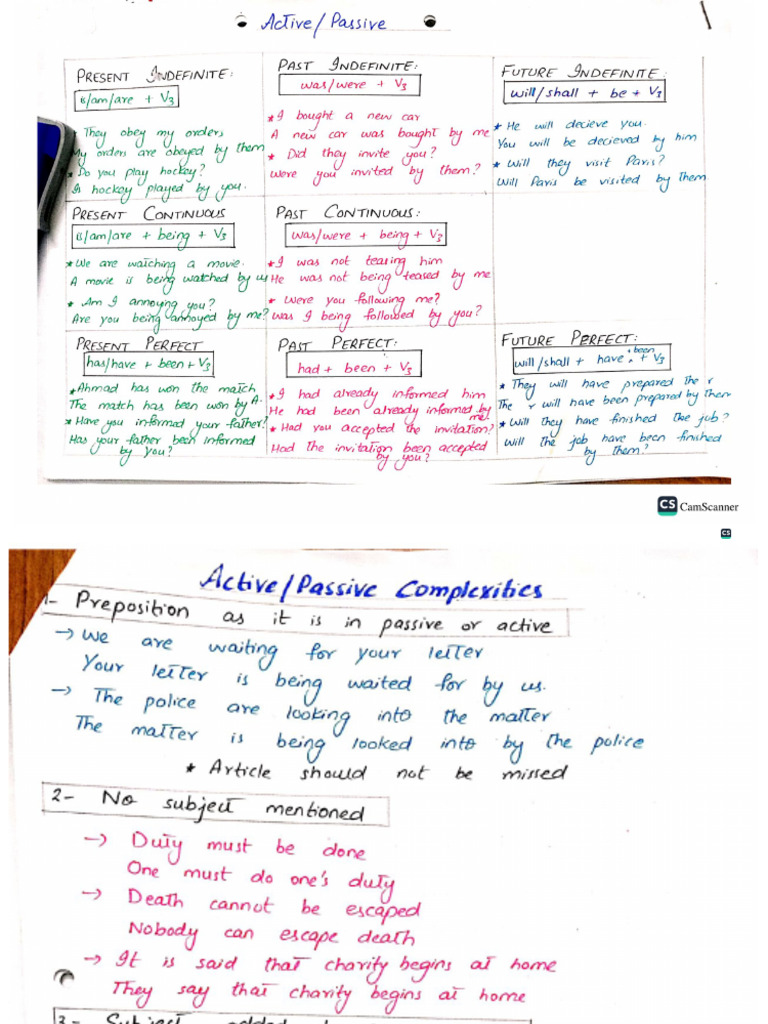 Active/Passive
PRESENT INDEFINITE:
is/am/are + V3
They obey my orders
My orders are obeyed by them
* Do you play hockey?
Is hockey played by you.
PAST INDEFINITE:
was/were + V3
* I bought a new car
A new car was bought by me
* Did they invite you?
Were you invited by them?
FUTURE INDEFINITE:
will/shall + be + V3
* He will decieve you.
You will be decieved by him
* Will they visit Paris?
Will Paris be visited by them
PRESENT CONTINUOUS
is/am/are + being + V3
* We are watching a movie.
A movie is being watched by us
* Am I annoying you?
Are you being annoyed by me?
PAST CONTINUOUS:
was/were + being + V3
* I was not teasing him
He was not being teased by me
* Were you following me?
Was I being followed by you?
PRESENT PERFECT
has/have + been + V3
* Ahmad has won the match
The match has been won by A.
* Have you informed your father?
Has your father been informed
by you?
PAST PERFECT:
had + been + V3
* I had already informed him
He had been already informed by
me!
* Had you accepted the invitation?
Had the invitation been accepted
by you?
FUTURE PERFECT:
will/shall + have + been + V3
* They will have prepared the r
The r will have been prepared by them
* Will they have finished the job?
Will the job have been finished
by them?
CS CamScanner
CS
Active/Passive Complexities
1- Preposition as it is in passive or active
→ We are waiting for your letter
Your letter is being waited for by us.
→ The police are looking into the matter
The matter is being looked into by the police
* Article should not be missed
2- No subject mentioned
→ Duty must be done
One must do one's duty
→ Death cannot be escaped
Nobody can escape death
→ It is said that charity begins at home
They say that charity begins at home
3- Subject added